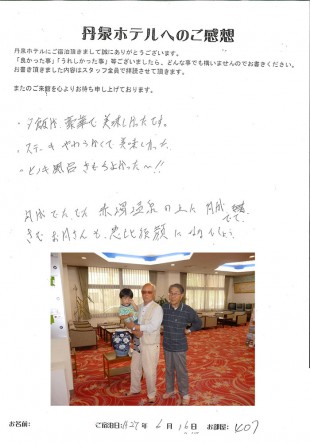 丹泉ホテルへのご感想
丹泉ホテルにご宿泊頂きまして誠にありがとうございます。
「良かった事」「うれしかった事」等ございましたら、どんな事でも構いませんのでお書きください。
お書き頂きました内容はスタッフ全員で拝読させて頂きます。
またのご来館を心よりお待ち申し上げております。
・夕飯が、豪華で美味しかったです。
・ステーキ やわらかくて美味しかった
・ヒノキ風呂 きもちよかった〜!!
赤湯温泉の上に
笑顔に
お名前:
ご宿泊日:H27年 6月 16日
お部屋: 407